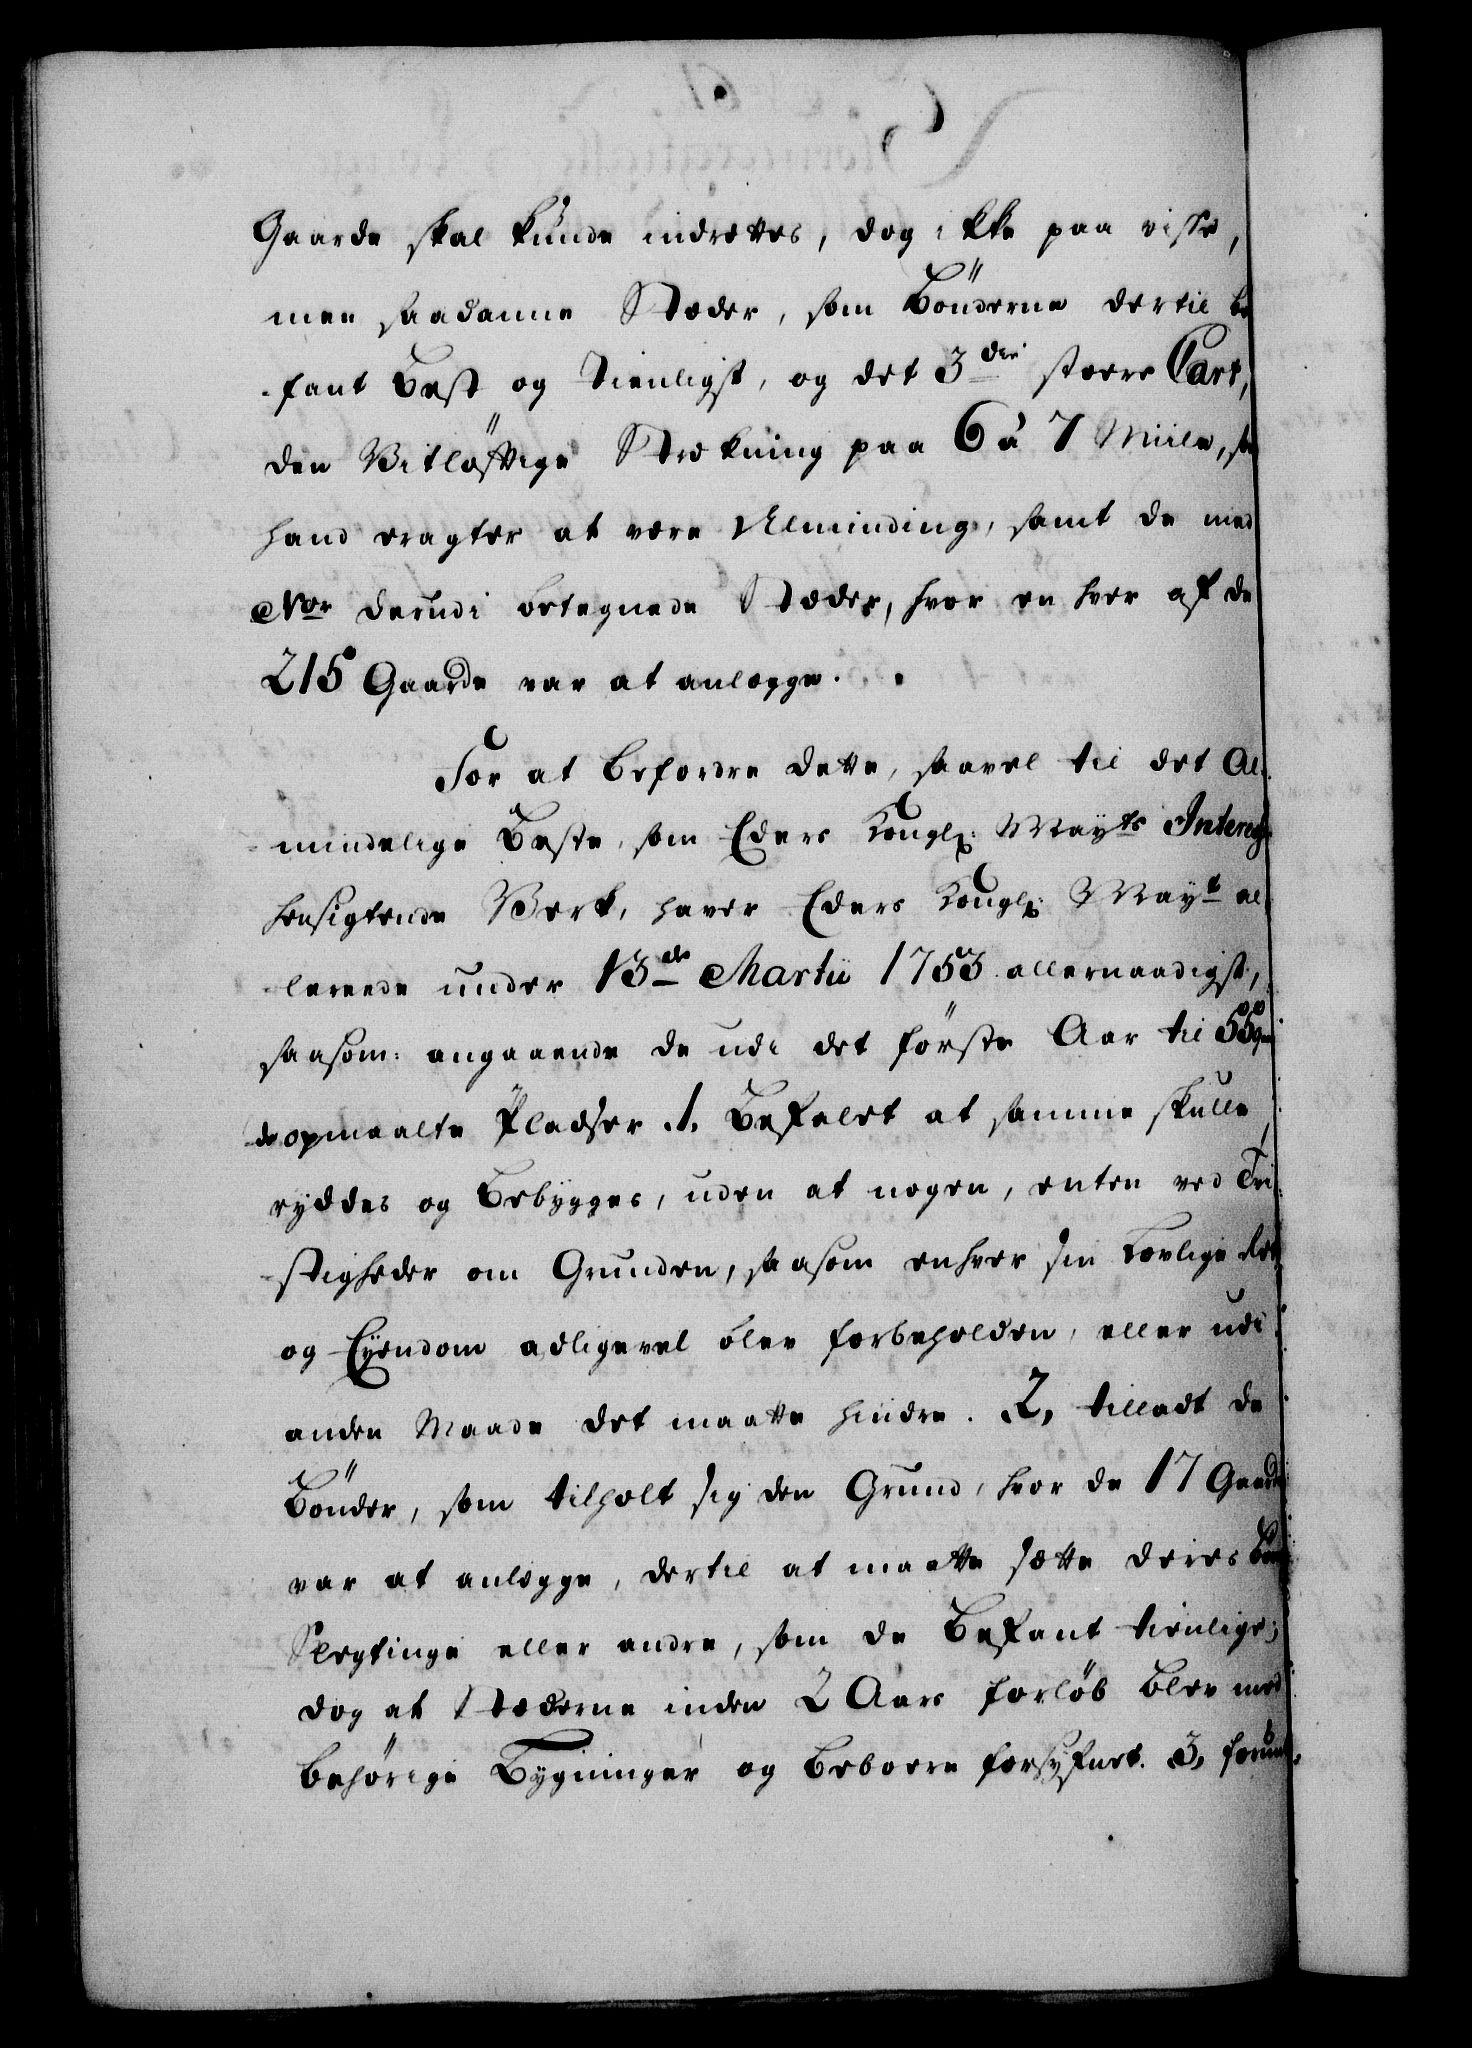 Gaarde skal kunde indrettes, dog ikke paa visse,
men saadanne Stæder, som Bönderne dertil be
fant Best og tienligst, og det 3die større Cart,
den Vitløftige Strekning paa 6 à 7 Miile, som
hand eragter at være Alminding, samt de med
Nor derudi betegnede Stæder, hvor en hver af de
215 Gaarde var at anlægge.
For at befordre dette, saavel til det Al
mindelige Beste, som Eders Kongl: Mayts Interesse
hensigtende Verk, haver Eders Kongl: Mayt al
lereede under 13de Martii 1753 allernaadigst,
saasom: angaaende de udi det förste Aar til
de opmaalte Pladser 1, Befalet at samme skulle
ryddes og Bebygges, uden at nogen, enten ved Tri
stigheder om Grunden, saasom enhver sin Lovlige Ret
og Eyendom adligevel blev forbeholden, eller udi
anden Maade det maatte hindre. 2, tilladt de
Bönder, som tilholt sig den Grund, hvor de 17 Gaarde
var at anlægge, dertil at maatte sætte deres Børn
Slegtinge eller andre, som de Befant tienlige;
dog at Stæderne inden 2 Aars forlöb blev med
behörige Bygninger og beboere forsyfnet. 3, forund